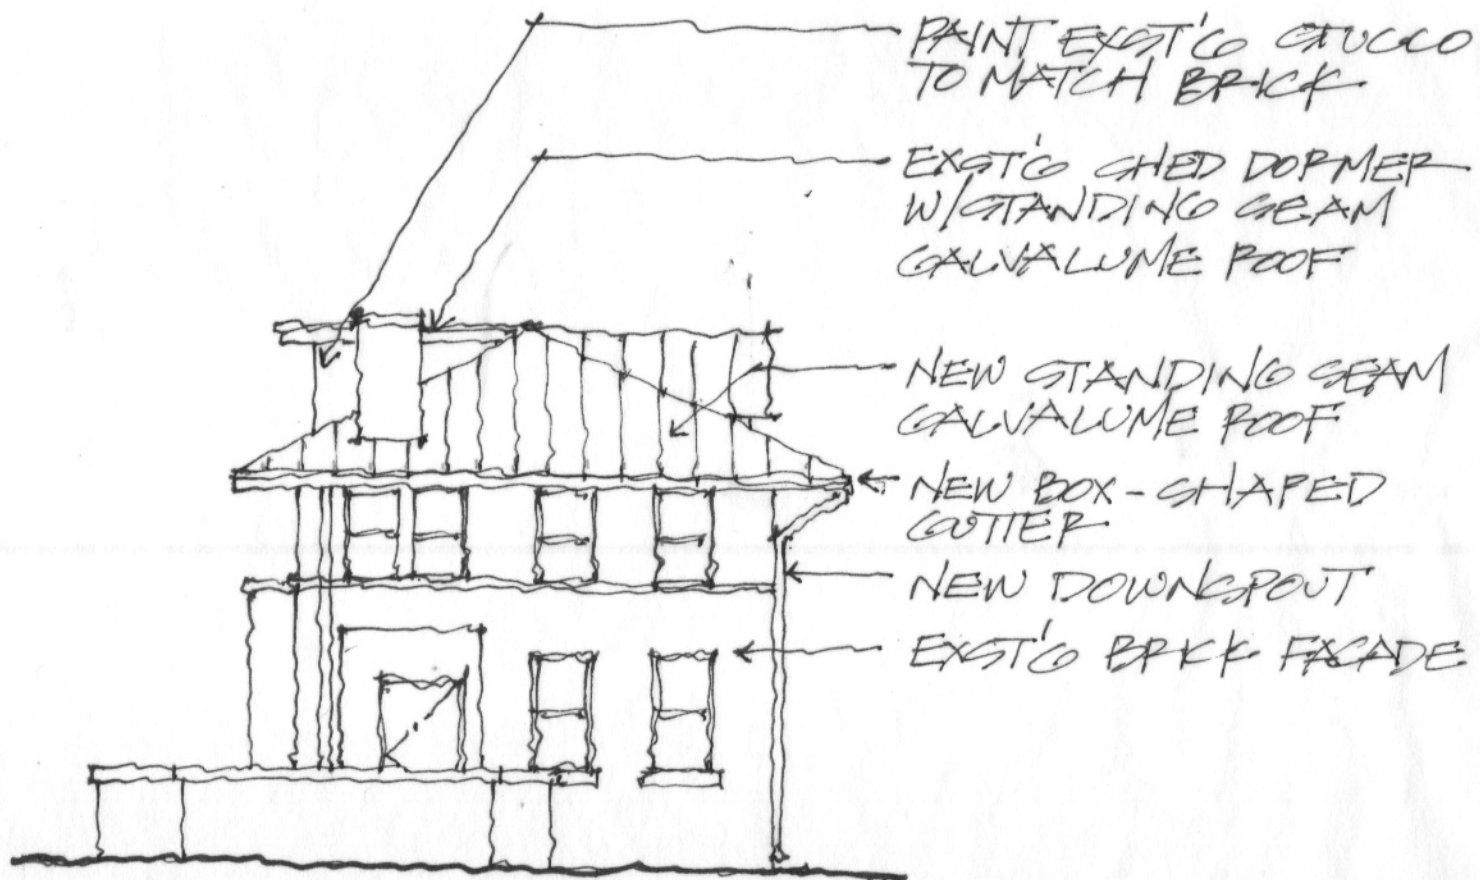 PAINT EXST'G STUCCO
TO MATCH BRICK
EXST'G SHED DORMER
W/STANDING SEAM
GALVALUME ROOF
NEW STANDING SEAM
GALVALUME ROOF
NEW BOX-SHAPED
GUTTER
NEW DOWNSPOUT
EXST'G BRICK FACADE